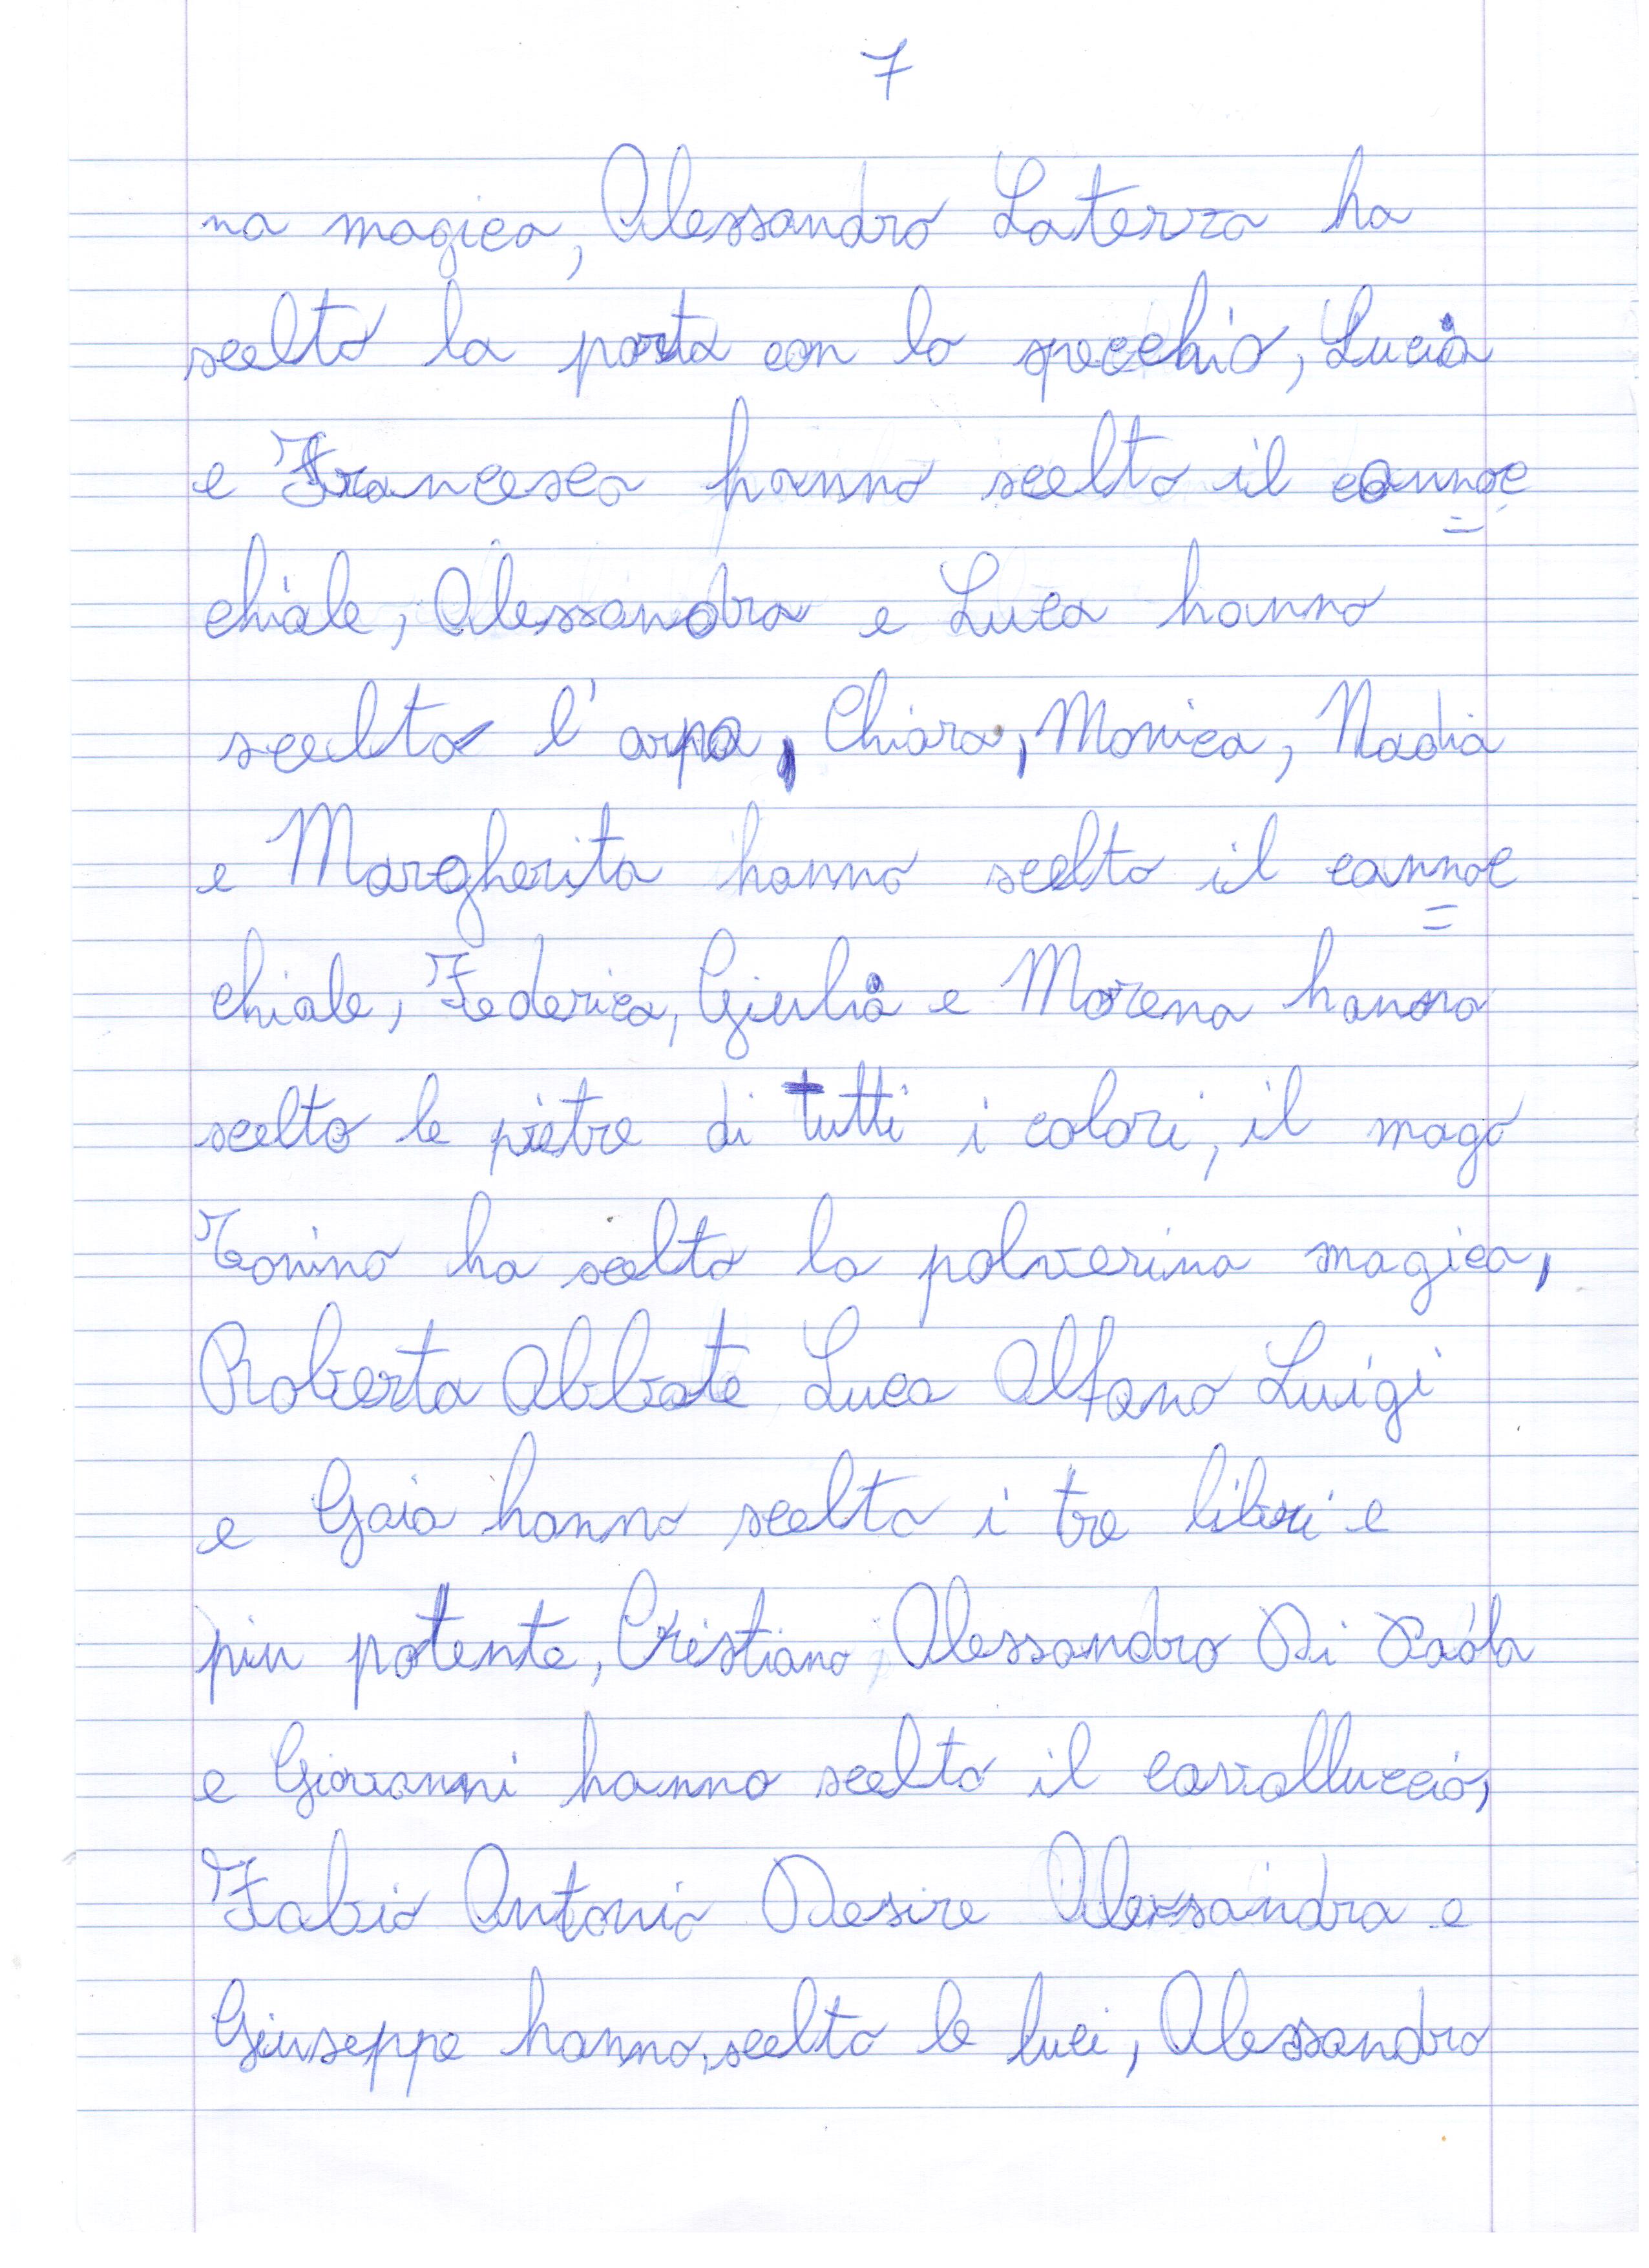 7
na magica, Alessandro Laterza ha
scelto la porta con lo specchio, Lucia
e Francesca hanno scelto il cannoc
=
chiale, Alessandra e Luca hanno
scelto l'arpa, Chiara, Monica, Nadia
e Margherita hanno scelto il cannoc
=
chiale, Federica, Giulia e Morena hanno
scelto le pietre di tutti i colori, il mago
Tonino ha scelto la polverina magica,
Roberta Abbate Luca Alfano Luigi
e Gaia hanno scelto i tre libri e
piu potente, Cristiano, Alessandro Di Paola
e Giovanni hanno scelto il cavalluccio,
Fabio Antonio Desire Alessandra e
Giuseppe hanno scelto le luci, Alessandro